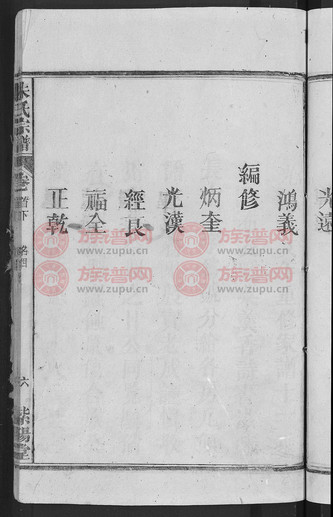 光遠
鴻義
編修
炳奎
光漢
經長
福全
正乾
朱氏宗譜
卷首下
六
紫陽堂
族譜网
www.zupu.cn
族譜网
www.zupu.cn
族譜网
www.zupu.cn
族譜网
www.zupu.cn